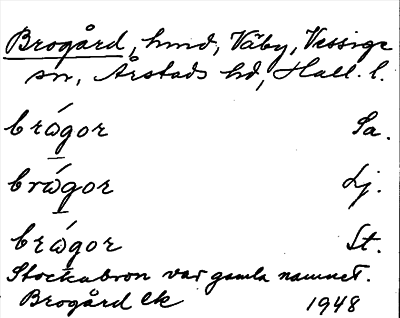 Brogård, hmd, Väby, Vessige
sn, Årstads hd, Hall. l.
brώgor Sa.
brώgor Lj.
brώgor St.
Stockabron var gamla namnet.
Brogård ek 1948